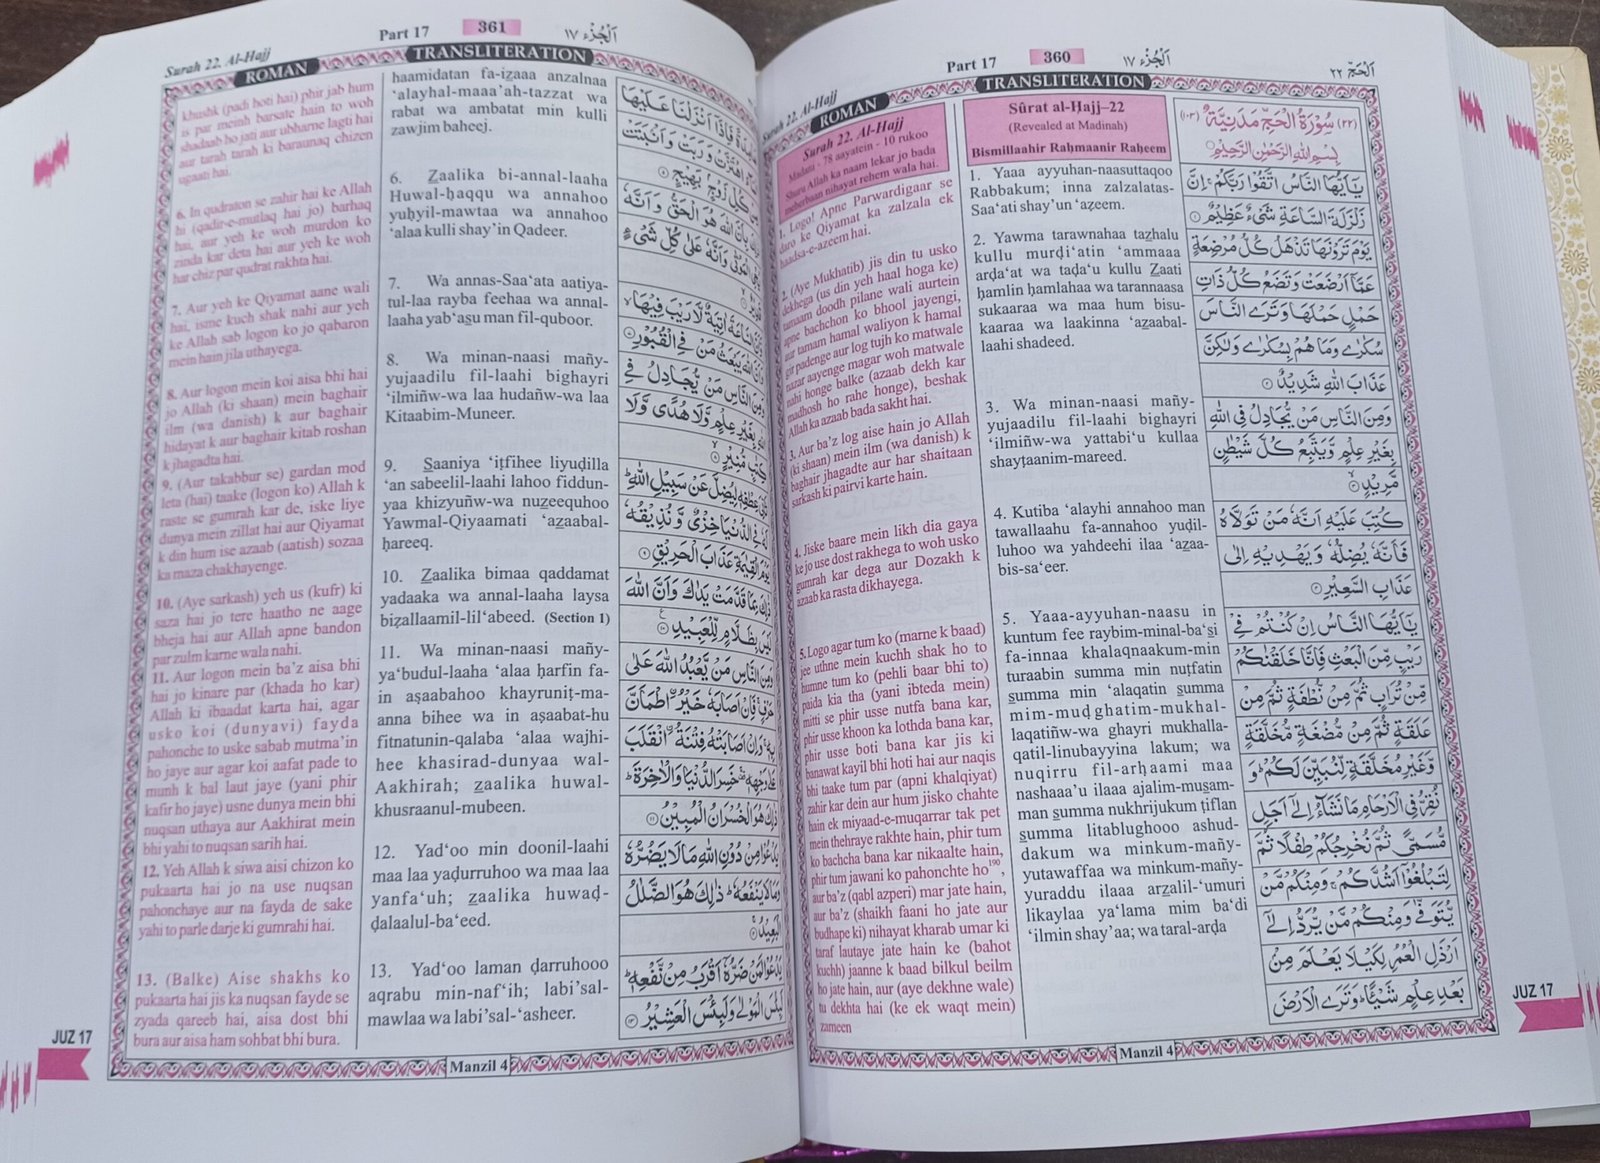 Surah 22. Al-Hajj
Part 17
360
اَلْجُزْء ١٧
اَلْحَجّ ٢٢
ROMAN
TRANSLITERATION
Surah 22. Al-Hajj
Madani - 78 aayatein - 10 rukoo
Shuru Allah ka naam lekar jo bada
meherbaan nihayat rehem wala hai.
1. Logo! Apne Parwardigaar se
daro ke Qiyamat ka zalzala ek
haadsa-e-azeem hai.
2. (Aye Mukhatib) jis din tu usko
dekhega (us din yeh haal hoga ke)
tamaam doodh pilane wali aurtein
apne bachchon ko bhool jayengi,
aur tamam hamal waliyon k hamal
gir padenge aur log tujh ko matwale
nazar aayenge magar woh matwale
nahi honge balke (azaab dekh kar
madhosh ho rahe honge), beshak
Allah ka azaab bada sakht hai.
3. Aur ba'z log aise hain jo Allah
(ki shaan) mein ilm (wa danish) k
baghair jhagadte aur har shaitaan
sarkash ki pairvi karte hain.
4. Jiske baare mein likh dia gaya
ke jo use dost rakhega to woh usko
gumrah kar dega aur Dozakh k
azaab ka rasta dikhayega.
5. Logo agar tum ko (marne k baad)
jee uthne mein kuchh shak ho to
humne tum ko (pehli baar bhi to)
paida kia tha (yani ibteda mein)
mitti se phir usse nutfa bana kar,
phir usse khoon ka lothda bana kar,
phir usse boti bana kar jis ki
banawat kayil bhi hoti hai aur naqis
bhi taake tum par (apni khalqiyat)
zahir kar dein aur hum jisko chahte
hain ek miyaad-e-muqarrar tak pet
mein thehraye rakhte hain, phir tum
ko bachcha bana kar nikaalte hain,
phir tum jawani ko pahonchte ho190,
aur ba'z (qabl azperi) mar jate hain,
aur ba'z (shaikh faani ho jate aur
budhape ki) nihayat kharab umar ki
taraf lautaye jate hain ke (bahot
kuchh) jaanne k baad bilkul beilm
ho jate hain, aur (aye dekhne wale)
tu dekhta hai (ke ek waqt mein)
zameen
Sûrat al-Ḥajj–22
(Revealed at Madinah)
Bismillaahir Raḥmaanir Raḥeem
1. Yaaa ayyuhan-naasuttaqoo
Rabbakum; inna zalzalatas-
Saa‘ati shay’un ‘aẓeem.
2. Yawma tarawnahaa tazhalu
kullu murḍi‘atin ‘ammaaa
arḍa‘at wa taḍa‘u kullu Zaati
ḥamlin ḥamlahaa wa tarannaasa
sukaaraa wa maa hum bisu-
kaaraa wa laakinna ‘azaabal-
laahi shadeed.
3. Wa minan-naasi mañy-
yujaadilu fil-laahi bighayri
‘ilmiñw-wa yattabi‘u kullaa
shayṭaanim-mareed.
4. Kutiba ‘alayhi annahoo man
tawallaahu fa-annahoo yuḍil-
luhoo wa yahdeehi ilaa ‘azaa-
bis-sa‘eer.
5. Yaaa-ayyuhan-naasu in
kuntum fee raybim-minal-ba‘si
fa-innaa khalaqnaakum-min
turaabin summa min nuṭfatin
summa min ‘alaqatin summa
mim-muḍghatim-mukhal-
laqatiñw-wa ghayri mukhalla-
qatil-linubayyina lakum; wa
nuqirru fil-arḥaami maa
nashaaa’u ilaaa ajalim-musam-
man summa nukhrijukum ṭiflan
summa litablughooo ashud-
dakum wa minkum-mañy-
yutawaffaa wa minkum-mañy-
yuraddu ilaaa arzalil-‘umuri
likaylaa ya‘lama mim ba‘di
‘ilmin shay’aa; wa taral-arḍa
(٢٢) سُوْرَةُ الْحَجِّ مَدَنِيَّةٌ (١٠٣)
بِسْمِ اللهِ الرَّحْمٰنِ الرَّحِيْمِ
يٰٓاَيُّهَا النَّاسُ اتَّقُوْا رَبَّكُمْ ۚ اِنَّ
زَلْزَلَةَ السَّاعَةِ شَىْءٌ عَظِيْمٌ ۞١
يَوْمَ تَرَوْنَهَا تَذْهَلُ كُلُّ مُرْضِعَةٍ
عَمَّآ اَرْضَعَتْ وَتَضَعُ كُلُّ ذَاتِ
حَمْلٍ حَمْلَهَا وَتَرَى النَّاسَ
سُكٰرٰى وَمَا هُمْ بِسُكٰرٰى وَلٰكِنَّ
عَذَابَ اللهِ شَدِيْدٌ ۞٢
وَمِنَ النَّاسِ مَنْ يُّجَادِلُ فِى اللهِ
بِغَيْرِ عِلْمٍ وَّيَتَّبِعُ كُلَّ شَيْطٰنٍ
مَّرِيْدٍ ۞٣
كُتِبَ عَلَيْهِ اَنَّهٗ مَنْ تَوَلَّاهُ
فَاَنَّهٗ يُضِلُّهٗ وَيَهْدِيْهِ اِلٰى
عَذَابِ السَّعِيْرِ ۞٤
يٰٓاَيُّهَا النَّاسُ اِنْ كُنْتُمْ فِيْ
رَيْبٍ مِّنَ الْبَعْثِ فَاِنَّا خَلَقْنٰكُمْ
مِّنْ تُرَابٍ ثُمَّ مِنْ نُّطْفَةٍ ثُمَّ مِنْ
عَلَقَةٍ ثُمَّ مِنْ مُّضْغَةٍ مُّخَلَّقَةٍ
وَّغَيْرِ مُخَلَّقَةٍ لِّنُبَيِّنَ لَكُمْ ۚ وَ
نُقِرُّ فِى الْاَرْحَامِ مَا نَشَآءُ اِلٰٓى اَجَلٍ
مُّسَمًّى ثُمَّ نُخْرِجُكُمْ طِفْلًا ثُمَّ
لِتَبْلُغُوْٓا اَشُدَّكُمْ ۚ وَمِنْكُمْ مَّنْ
يُّتَوَفّٰى وَمِنْكُمْ مَّنْ يُّرَدُّ اِلٰٓى
اَرْذَلِ الْعُمُرِ لِكَيْلَا يَعْلَمَ مِنْ
بَعْدِ عِلْمٍ شَيْئًا ۚ وَتَرَى الْاَرْضَ
Manzil 4
JUZ 17
Surah 22. Al-Hajj
Part 17
361
اَلْجُزْء ١٧
ROMAN
TRANSLITERATION
khushk (padi hoti hai) phir jab hum
is par meinh barsate hain to woh
shadaab ho jati aur ubharne lagti hai
aur tarah tarah ki baraunaq chizen
ugaati hai.
6. In qudraton se zahir hai ke Allah
hi (qadir-e-mutlaq hai jo) barhaq
hai, aur yeh ke woh murdon ko
zinda kar deta hai aur yeh ke woh
har chiz par qudrat rakhta hai.
7. Aur yeh ke Qiyamat aane wali
hai, isme kuch shak nahi aur yeh
ke Allah sab logon ko jo qabaron
mein hain jila uthayega.
8. Aur logon mein koi aisa bhi hai
jo Allah (ki shaan) mein baghair
ilm (wa danish) k aur baghair
hidayat k aur baghair kitab roshan
k jhagadta hai.
9. (Aur takabbur se) gardan mod
leta (hai) taake (logon ko) Allah k
raste se gumrah kar de, iske liye
dunya mein zillat hai aur Qiyamat
k din hum ise azaab (aatish) sozaa
ka maza chakhayenge.
10. (Aye sarkash) yeh us (kufr) ki
saza hai jo tere haatho ne aage
bheja hai aur Allah apne bandon
par zulm karne wala nahi.
11. Aur logon mein ba’z aisa bhi
hai jo kinare par (khada ho kar)
Allah ki ibaadat karta hai, agar
usko koi (dunyavi) fayda
pahonche to uske sabab mutma’in
ho jaye aur agar koi aafat pade to
munh k bal laut jaye (yani phir
kafir ho jaye) usne dunya mein bhi
nuqsan uthaya aur Aakhirat mein
bhi yahi to nuqsan sarih hai.
12. Yeh Allah k siwa aisi chizon ko
pukaarta hai jo na use nuqsan
pahonchaye aur na fayda de sake
yahi to parle darje ki gumrahi hai.
13. (Balke) Aise shakhs ko
pukaarta hai jis ka nuqsan fayde se
zyada qareeb hai, aisa dost bhi
bura aur aisa ham sohbat bhi bura.
haamidatan fa-izaaa anzalnaa
‘alayhal-maaa’ah-tazzat wa
rabat wa ambatat min kulli
zawjim baheej.
6. Zaalika bi-annal-laaha
Huwal-ḥaqqu wa annahoo
yuḥyil-mawtaa wa annahoo
‘alaa kulli shay’in Qadeer.
7. Wa annas-Saa‘ata aatiya-
tul-laa rayba feehaa wa annal-
laaha yab‘asu man fil-quboor.
8. Wa minan-naasi mañy-
yujaadilu fil-laahi bighayri
‘ilmiñw-wa laa hudañw-wa laa
Kitaabim-Muneer.
9. Saaniya ‘iṭfihee liyuḍilla
‘an sabeelil-laahi lahoo fiddun-
yaa khizyuñw-wa nuzeequhoo
Yawmal-Qiyaamati ‘azaabal-
ḥareeq.
10. Zaalika bimaa qaddamat
yadaaka wa annal-laaha laysa
biẓallaamil-lil‘abeed. (Section 1)
11. Wa minan-naasi mañy-
ya‘budul-laaha ‘alaa ḥarfin fa-
in aṣaabahoo khayruniṭ-ma-
anna bihee wa in aṣaabat-hu
fitnatunin-qalaba ‘alaa wajhi-
hee khasirad-dunyaa wal-
Aakhirah; zaalika huwal-
khusraanul-mubeen.
12. Yad‘oo min doonil-laahi
maa laa yaḍurruhoo wa maa laa
yanfa‘uh; zaalika huwaḍ-
ḍalaalul-ba‘eed.
13. Yad‘oo laman ḍarruhooo
aqrabu min-naf‘ih; labi’sal-
mawlaa wa labi’sal-‘asheer.
فَاِذَآ اَنْزَلْنَا عَلَيْهَا
اهْتَزَّتْ وَرَبَتْ وَاَنْۢبَتَتْ
مِنْ كُلِّ زَوْجٍۢ بَهِيْجٍ ۞٥
بِاَنَّ اللهَ هُوَ الْحَقُّ وَاَنَّهٗ
الْمَوْتٰى وَاَنَّهٗ عَلٰى كُلِّ شَىْءٍ
السَّاعَةَ اٰتِيَةٌ لَّا رَيْبَ فِيْهَا ۙ
اللهَ يَبْعَثُ مَنْ فِى الْقُبُوْرِ ۞٧
وَمِنَ النَّاسِ مَنْ يُّجَادِلُ فِى
اللهِ بِغَيْرِ عِلْمٍ وَّلَا هُدًى وَّلَا
كِتٰبٍ مُّنِيْرٍ ۞٨
عِطْفِهٖ لِيُضِلَّ عَنْ سَبِيْلِ اللهِ ۚ
فِى الدُّنْيَا خِزْىٌ وَّنُذِيْقُهٗ
يَوْمَ الْقِيٰمَةِ عَذَابَ الْحَرِيْقِ ۞٩
ذٰلِكَ بِمَا قَدَّمَتْ يَدٰكَ وَاَنَّ اللهَ
لَيْسَ بِظَلَّامٍ لِّلْعَبِيْدِ ۞١٠
وَمِنَ النَّاسِ مَنْ يَّعْبُدُ اللهَ عَلٰى
حَرْفٍ ۚ فَاِنْ اَصَابَهٗ خَيْرُ ۨاطْمَاَنَّ
بِهٖ ۚ وَاِنْ اَصَابَتْهُ فِتْنَةُ ۨانْقَلَبَ
عَلٰى وَجْهِهٖ ۚ خَسِرَ الدُّنْيَا وَالْاٰخِرَةَ ۚ
ذٰلِكَ هُوَ الْخُسْرَانُ الْمُبِيْنُ ۞١١
يَدْعُوْا مِنْ دُوْنِ اللهِ مَا لَا يَضُرُّهٗ
وَمَا لَا يَنْفَعُهٗ ۚ ذٰلِكَ هُوَ الضَّلٰلُ
الْبَعِيْدُ ۞١٢
يَدْعُوْا لَمَنْ ضَرُّهٗٓ اَقْرَبُ مِنْ نَّفْعِهٖ ۚ
لَبِئْسَ الْمَوْلٰى وَلَبِئْسَ الْعَشِيْرُ ۞١٣
Manzil 4
JUZ 17